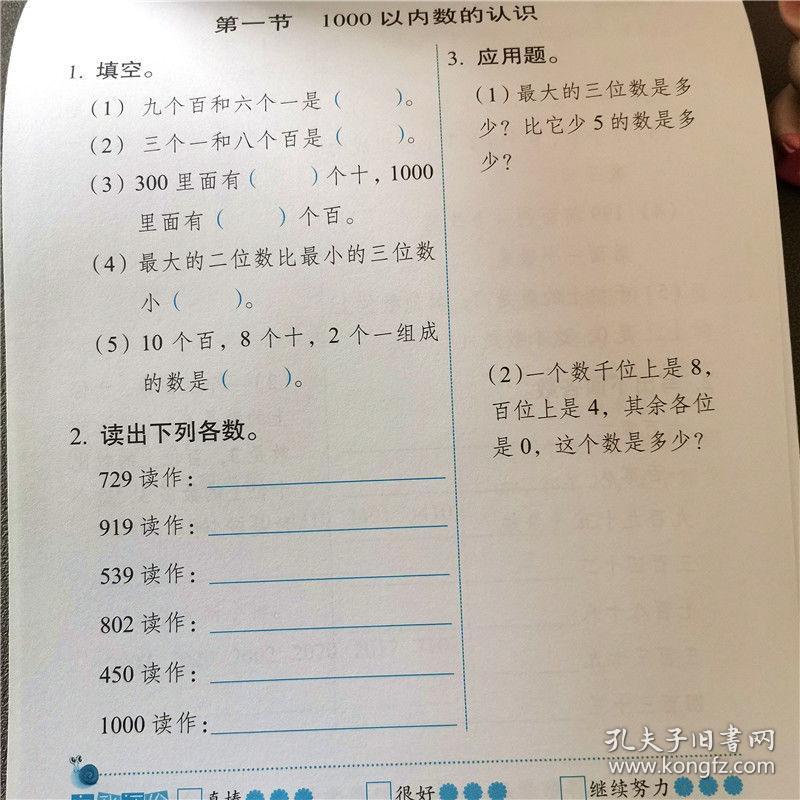 第一节 1000 以内数的认识
1. 填空。
(1) 九个百和六个一是( )。
(2) 三个一和八个百是( )。
(3) 300 里面有( )个十，1000
里面有( )个百。
(4) 最大的二位数比最小的三位数
小( )。
(5) 10 个百，8 个十，2 个一组成
的数是( )。
2. 读出下列各数。
729 读作：
919 读作：
539 读作：
802 读作：
450 读作：
1000 读作：
3. 应用题。
(1) 最大的三位数是多
少？比它少 5 的数是多
少？
(2) 一个数千位上是 8，
百位上是 4，其余各位
是 0，这个数是多少？
真棒 很好 继续努力
孔夫子旧书网
www.kongfz.com